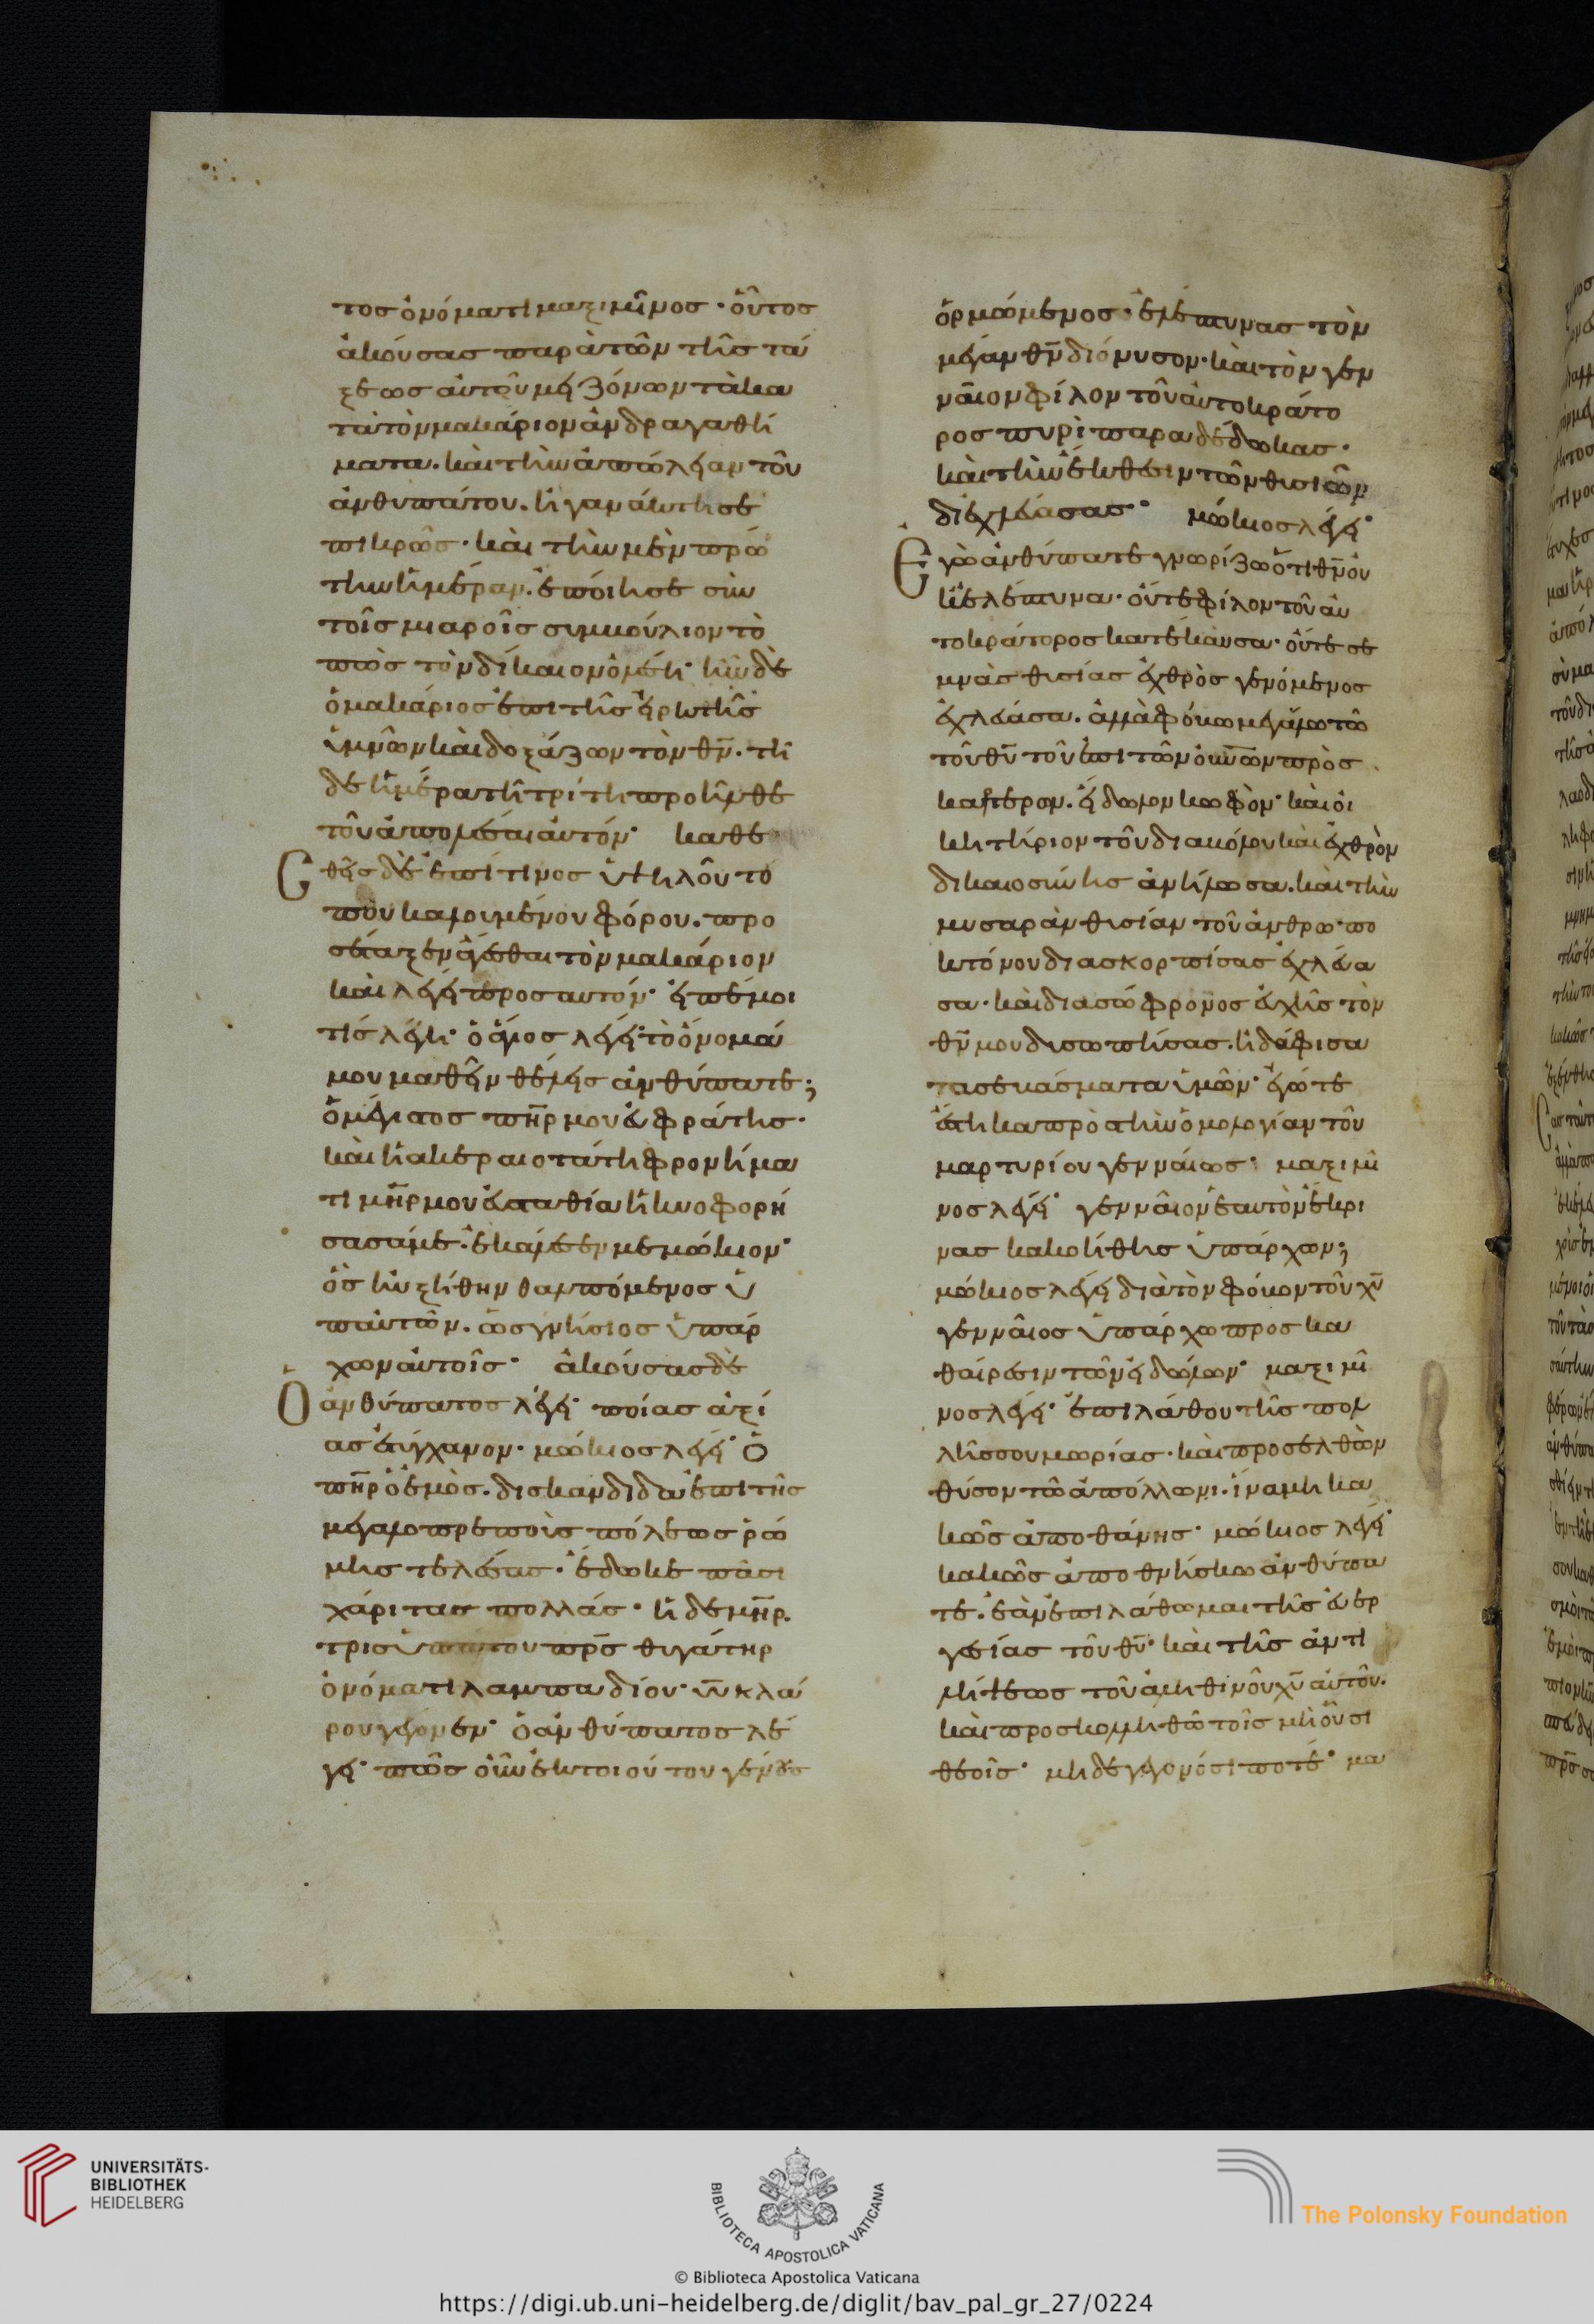 τος ὀνόματι μαξιμῖνος · οὗτος
ἀκούσας παρὰ τῶν τῆς τά
ξεως αὐτοῦ μειζόνων τὰ κα
τὰ τὸν μακάριον ἀνδραγαθή
ματα. καὶ τὴν ἀπώλειαν τοῦ
ἀνθυπάτου. ἠγανάκτησε
πικρῶς · καὶ τὴν μὲν πρώ
την ἡμέραν. ἐποίησε σὺν
τοῖς μιαροῖς συμβούλιον τὸ
πῶς τὸν δίκαιον ὀλέσει · ἦν δὲ
ὁ μακάριος ἐπὶ τῆς εἱρκτῆς
ὑμνῶν καὶ δοξάζων τὸν θν̄. τῇ
δὲ ἡμέρα τῇ τρίτη προῆλθε
τοῦ ἀπολέσαι αὐτόν · καθε
σθεὶς δὲ ἐπί τινος ὑψηλοῦ τό
που καλουμένου φόρου. προ
σέταξεν ἄγεσθαι τὸν μακάριον
καὶ λέγει προς αυτόν · εἰπέ μοι
τίς λέγη · ὁ ἅγιος λέγει · τὸ ὄνομά
μου μαθεῖν θέλεις ἀνθύπατε;
ὁ μέγιστος πη̄ρ μου εὐφράτης ·
καὶ ἡ ἀκεραιοτάτη φρονήμα
τι μη̄ρ μου εὐσταθία ἡ κυοφορή
σασά με. ἐκάλεσεν με μώκιον ·
ὃς ηὐξήθην θαλπόμενος ὑ
π αὐτῶν. ὡς γνήσιος ὑπάρ
χων αὐτοῖς · ἀκούσας δὲ
Ὁ ἀνθύπατος λέγει · ποίας ἀξί
ας ἐτύγχανον · μώκιος λέγει · Ὁ
πη̄ρ ὁ ἐμὸς. δισκανδιδάυ ἐπὶ τῆς
μεγαλοπρεποῦς πόλεως ῥώ
μης τελέσας · ἔδωκε πᾶσι
χάριτας πολλάς · ἡ δὲ μη̄ρ.
τρισυπάτου πρ̄ς θυγάτηρ
ὀνόματι λαμπαδίου · ἐκ κλά
ρου γέγονεν · ὁ ἀνθύπατος λέ
γει · πῶς οὖν ἐκ τοιούτου γένους
ὁρμώμενος · ἐλέπτυνας τὸν
μέγαν θν̄ διόνυσον · καὶ τὸν γεν
ναῖον φίλον τοῦ αὐτοκράτο
ρος πυρὶ παραδέδωκας ·
καὶ τὴν ἔκθεσιν τῶν θυσιῶν
διεχλεύασας · μώκιος λέγει ·
Ἐγὼ ἀνθύπατε γνωρίζω ὅτι θν̄ οὐ
κ ἐλέπτυνα · οὔτε φίλον τοῦ αὐ
τοκράτορος κατέκαυσα · οὔτε σε
μνὰς θυσίας ἐχθρὸς γενόμενος
ἐχλεύασα. ἀλλὰ φόνω μεγάλω τῶ
τοῦ θῡ τοῦ ἐπὶ τῶν οὐν̄ων πρὸς
καρτερον. εἴδωλον κωφὸν · καὶ οἰ
κητήριον τοῦ διακόνου καὶ ἐχθρὸν
δικαιοσύνης ἀνήλωσα. καὶ τὴν
μυσαρὰν θυσίαν τοῦ ἀνθρωπο
κτόνου διασκορπίσας ἐχλεύα
σα · καὶ διὰ σώφρονος εὐχῆς τὸν
θν̄ μου δυσωπήσας. ἠδάφισα
τα σεβάσματα ὑμῶν · ἐγώ τε
ἕστηκα πρὸς τὴν ὁμολογίαν τοῦ
μαρτυρίου γενναίως · μαξιμῖ
νος λέγει · γενναῖον ἑαυτὸν ἔκρι
νας κακοήθης ὑπάρχων;
μώκιος λέγει διὰ τὸν φόνον τοῦ χῡ
γενναῖος ὑπάρχω προς κα
θαίρεσιν τῶν εἰδώλων · μαξιμῖ
νος λέγει · ἐπιλάθου τῆς πολ
λῆς σου μωρίας · καὶ προσελθὼν
θύσον τῶ ἀπόλλωνι. ἵνα μὴ κα
κῶς ἀποθάνης · μώκιος λέγει ·
κακῶς ἀποθνήσκω ἀνθύπα
τε. ἐὰν ἐπιλάθωμαι τῆς εὐερ
γεσίας τοῦ θῡ · καὶ τῆς ἀντι
λήψεως τοῦ ἀληθινοῦ χῡ αὐτοῦ.
καὶ προσκολληθῶ τοῖς μὴ οὖσι
θεοῖς · μηδὲ γεγονόσι ποτέ · μα
UNIVERSITÄTS-
BIBLIOTHEK
HEIDELBERG
BIBLIOTECA APOSTOLICA VATICANA
The Polonsky Foundation
© Biblioteca Apostolica Vaticana
https://digi.ub.uni-heidelberg.de/diglit/bav_pal_gr_27/0224